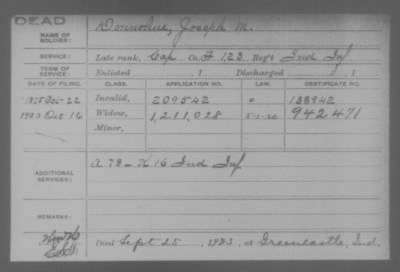 DEAD
NAME OF SOLDIER: Donnohue, Joseph M.
SERVICE: Late rank, Cap Co. F, 123 Reg't Ind Inf
TERM OF SERVICE: Enlisted , 1 Discharged , 1
DATE OF FILING. CLASS. APPLICATION NO. LAW. CERTIFICATE NO.
1875 Oct-22 Invalid, 209542 138942
1923 Oct 16 Widow, 1,211,028 5-1-20 942471
Minor,
ADDITIONAL SERVICES: A 78 - K 16 Ind Inf
REMARKS:
Died Sept 25, 1923, at Greencastle, Ind.